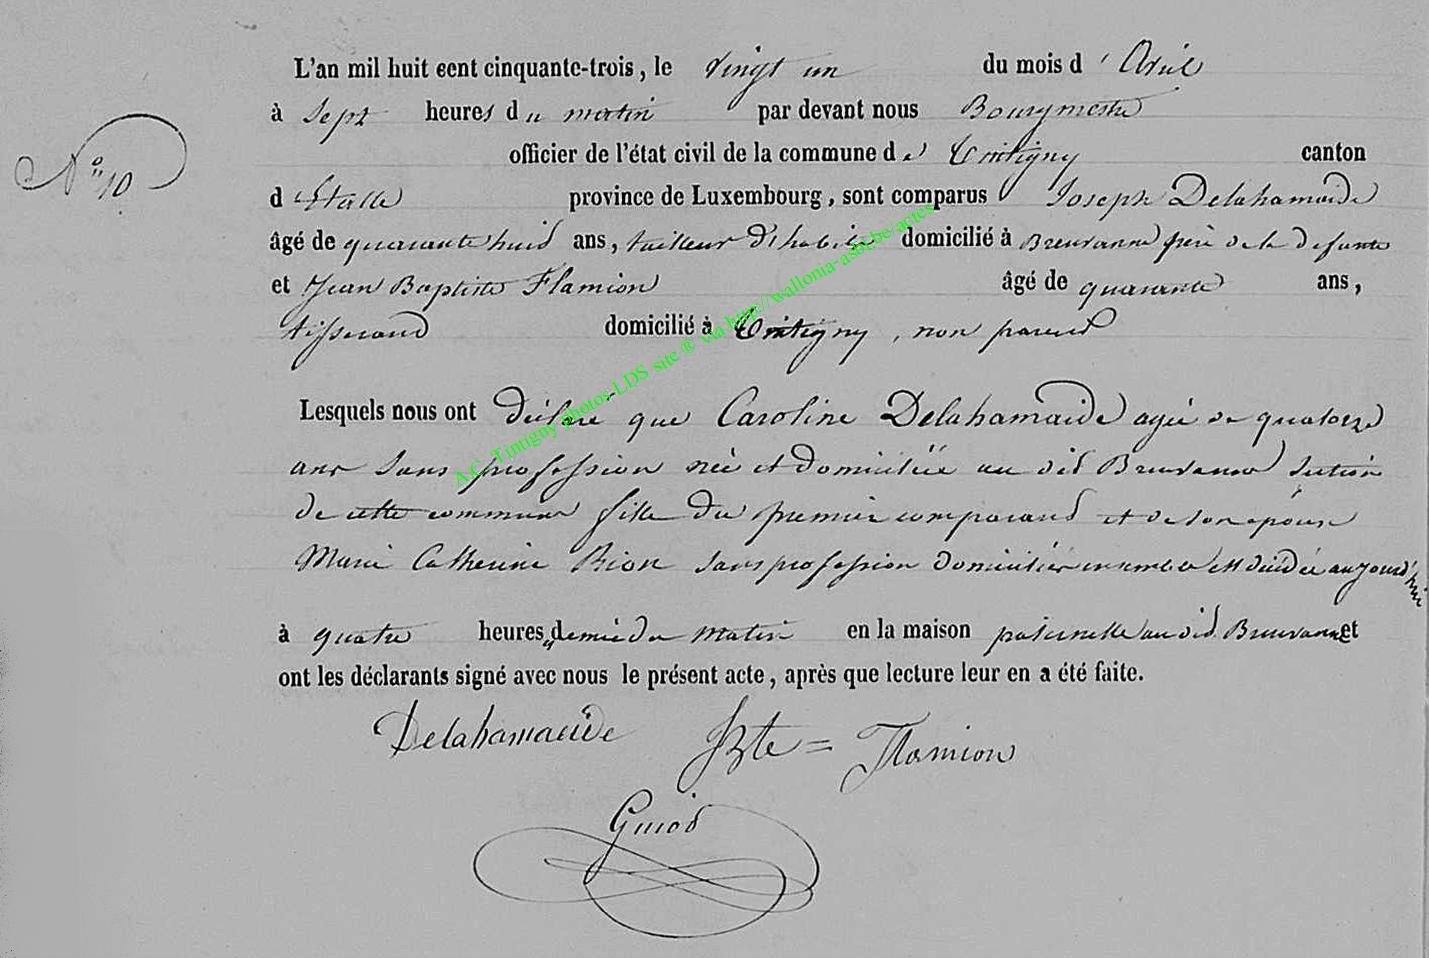 L'an mil huit cent cinquante-trois, le vingt un du mois d'Avril
à Sept heures du matin par devant nous Bourgmestre
officier de l'état civil de la commune de Tintigny canton
N° 10
d'Etalle province de Luxembourg, sont comparus Joseph Delahamaide
âgé de quarante huit ans, tailleur d'habits domicilié à Breuvanne père de la defunte
et Jean Baptiste Flamion âgé de quarante ans,
tisserand domicilié à Tintigny, non parent
Lesquels nous ont déclaré que Caroline Delahamaide agée de quatorze
ans sans profession née et domiciliée au dit Breuvanne section
de cette commune fille du premier comparant et de son épouse
Marie Catherine Rion sans profession domiciliés ensemble est décédée aujourd'hui
à quatre heures demie du matin en la maison paternelle au dit Breuvanne et
ont les déclarants signé avec nous le présent acte, après que lecture leur en a été faite.
Delahamaide JBte = Flamion
Guiot
A.C. Tintigny photos-LDS site ® via http://wallonia-asbl.be/actes